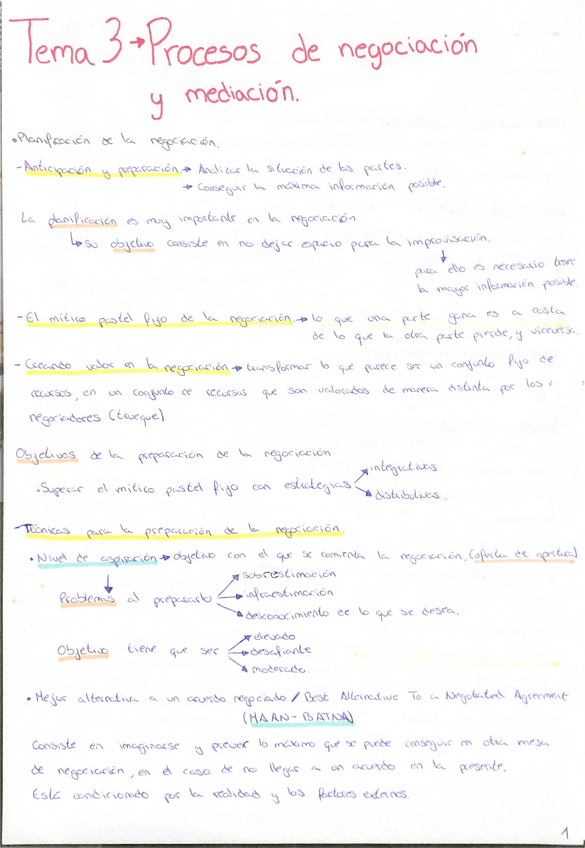 Tema 3→Procesos de negociación
y mediación.
•Planificación de la negociación.
-Anticipación y preparación→ Analizar la situación de las partes.
→ Conseguir la máxima información posible.
La planificación es muy importante en la negociación
↳su objetivo consiste en no dejar espacio para la improvisación.
↓
para ello es necesario tener
la mayor información posible.
-El mítico pastel fijo de la negociación→lo que una parte gana es a costa
de lo que la otra parte pierde, y viceversa.
-Creando valor en la negociación→transformar lo que parece ser un conjunto fijo de
recursos, en un conjunto de recursos que son valorados de manera distinta por los
negociadores (trueque)
Objetivos de la preparación de la negociación
→integrativas
•Superar el mítico pastel fijo con estrategias
→distributivas.
-Técnicas para la preparación de la negociación.
•Nivel de aspiración→objetivo con el que se comienza la negociación. (oferta de apertura)
↓
→sobrestimación
Problemas al prepararlo →infraestimación
→desconocimiento de lo que se desea.
→elevado
Objetivo tiene que ser →desafiante
→moderado.
•Mejor alternativa a un acuerdo negociado / Best Alternative To a Negotiated Agreement
(MAAN-BATNA)
Consiste en imaginarse y prever lo máximo que se puede conseguir en otra mesa
de negociación, en el caso de no llegar a un acuerdo en la presente.
Está condicionado por la realidad y los factores externos.
1